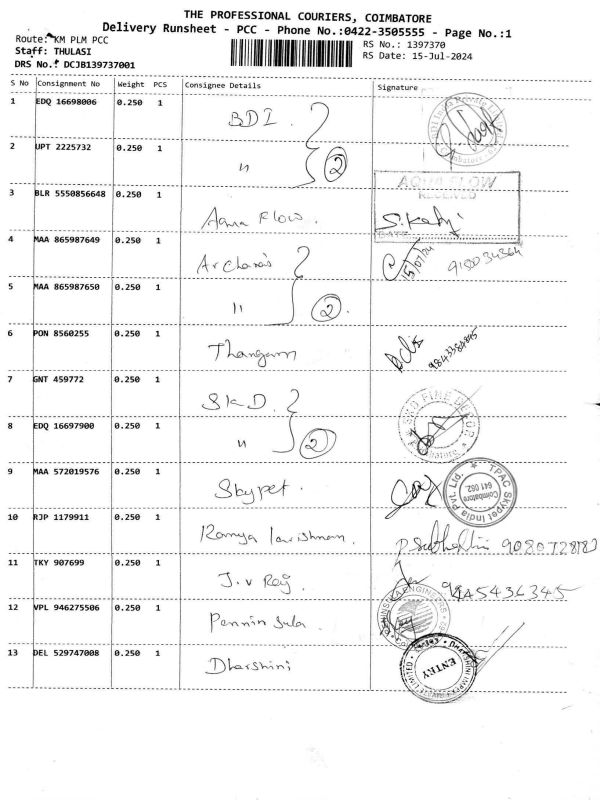 THE PROFESSIONAL COURIERS, COIMBATORE
Delivery Runsheet - PCC - Phone No.:0422-3505555 - Page No.:1
Route: KM PLM PCC
RS No.: 1397370
Staff: THULASI
RS Date: 15-Jul-2024
DRS No.: DCJB139737001
S No Consignment No Weight PCS Consignee Details Signature
1 EDQ 16698006 0.250 1 BDI
2 UPT 2225732 0.250 1 " 2
3 BLR 5550856648 0.250 1 Aqua Flow. AQUA FLOW
RECEIVED
S.Kathi
DATE
4 MAA 865987649 0.250 1 Archanas 15/07/24
5 MAA 865987650 0.250 1 " 2
6 PON 8560255 0.250 1 Thangam
7 GNT 459772 0.250 1 SKD
8 EDQ 16697900 0.250 1 " 2
9 MAA 572019576 0.250 1 Skypet. TPAC Skypet India Pvt. Ltd. Coimbatore 641 062.
10 RJP 1179911 0.250 1 Ramya
11 TKY 907699 0.250 1 J.V Raj. 9445436345
12 VPL 946275506 0.250 1 Pennin sula
13 DEL 529747008 0.250 1 Dharshini ENTRY